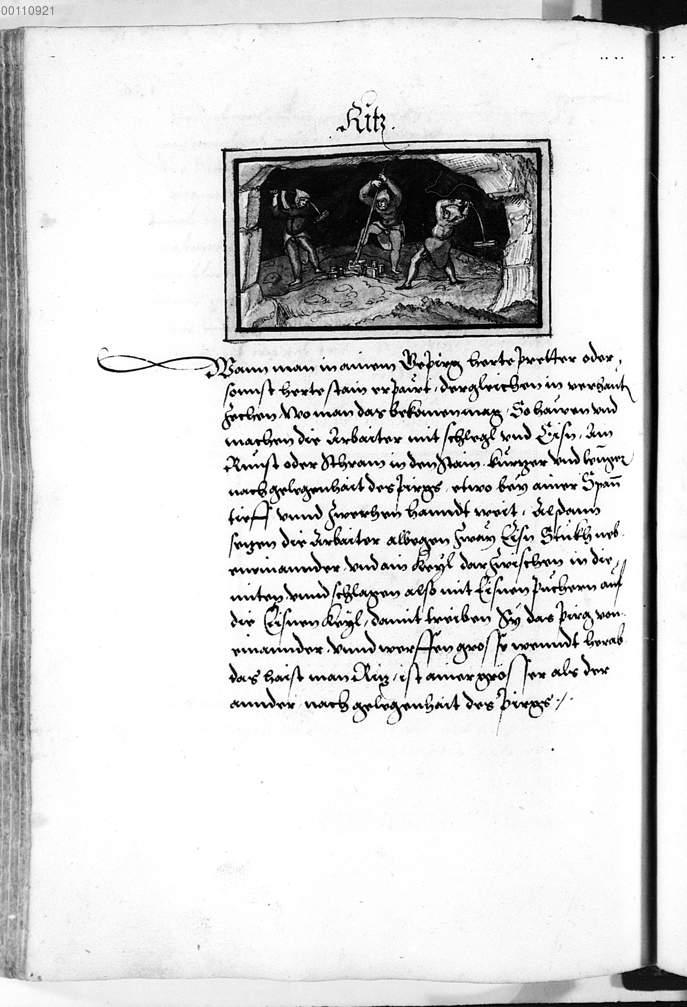 00110921
Ritz.
Wann man in ainem Gepirg herte pretter oder
sonnst herte stain erpaut, dergleichen in verhaut
Zechen Wo man das bekomen mag. So hawen vnd
machen die Arbaiter mit schlegl vnd Eisn. Am
Runst oder Schram in den stain. kurtzer vnd lenger
nach gelegenhait des pirgs, etwo bey ainer Spann
tieff vnnd Zwerhen hanndt weit, Alsdann
setzen die Arbaiter albegen Zway Eisn Stukh neb
eineinannder vnd ain Keyl darZwischen in die
miten, vnnd schlagen also mit Eisnen puchern auf
die Eisnen Keyl, damit treiben Sy das pirg von
einannder, vnnd werffen grosse wenndt herab
das haist man Ritz, ist ainer grösser als der
annder, nach gelegenhait des Pirgs